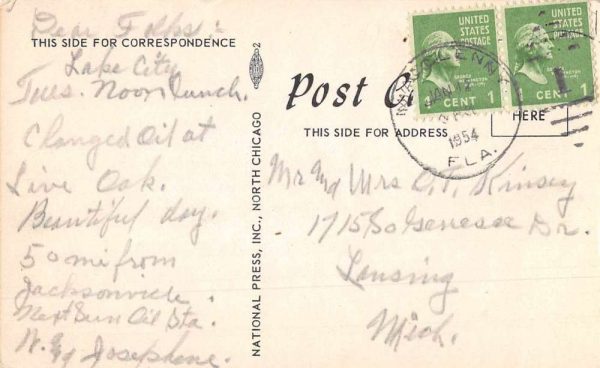 Dear Folks:-
THIS SIDE FOR CORRESPONDENCE
Lake City
Tues. Noon lunch.
Changed Oil at
Live Oak.
Beautiful day.
50 mi from
Jacksonville.
Next Sun Oil Sta.
Josephine.
2
NATIONAL PRESS, INC., NORTH CHICAGO
Post C
THIS SIDE FOR ADDRESS
HERE
UNITED
STATES
POSTAGE
1 CENT 1
UNITED
STATES
POSTAGE
1 CENT 1
GLENN
JAN 12
1954
FLA.
Mr and Mrs Kinsey
1715 So Genesee Dr.
Lansing
Mich.